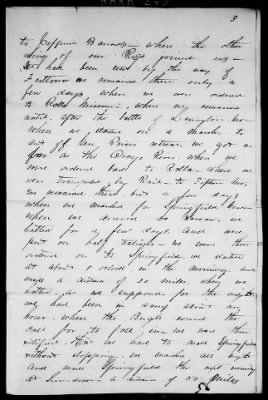 3
to Jefferson Barracks where the other
Wing of our Regt joined us
had been sent by the way of
we remained there only a
few days when we were ordered
to Rolla Missouri, where we remained
until after the battle of Lexington Mo
When we started on a march, to
cut off Gen. Prices retreat. we got as
far as the Osage River when we
were ordered back to Rolla where we
were transferred by Rail to Tipton Mo,
We remained there but a few days
when we marched for Springfield
When we arrived at Warsaw, we
halted for a few days. and were
put on half rations we were then
ordered on to Springfield, we started
at about 8 o'clock in the morning and
made a distance of 20 miles when we
halted, as we supposed for the night.
we had been in Camp about an
hour, when the Bugle sounded the
Call for to fall in, we were then
notified that we have to reach Springfield
without stopping. we marched all night
and made Springfield the next evening
at sun-down a distance of 50 miles